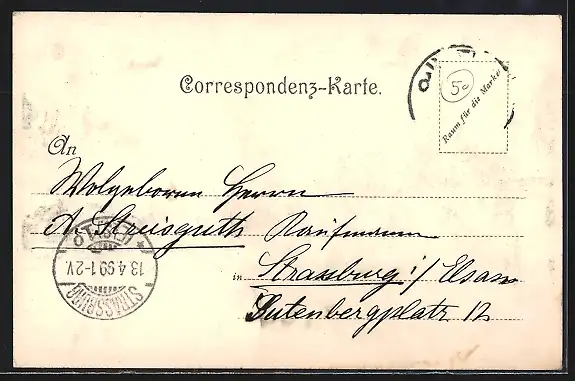 Correspondenz-Karte.
50
Raum für die Marke
An
Wolgeboren Herrn
A. Streisguth Kaufmann
in Strassburg i/ Elsass
Gutenbergplatz 12
13.4.99.1-2V
STRASSBURG